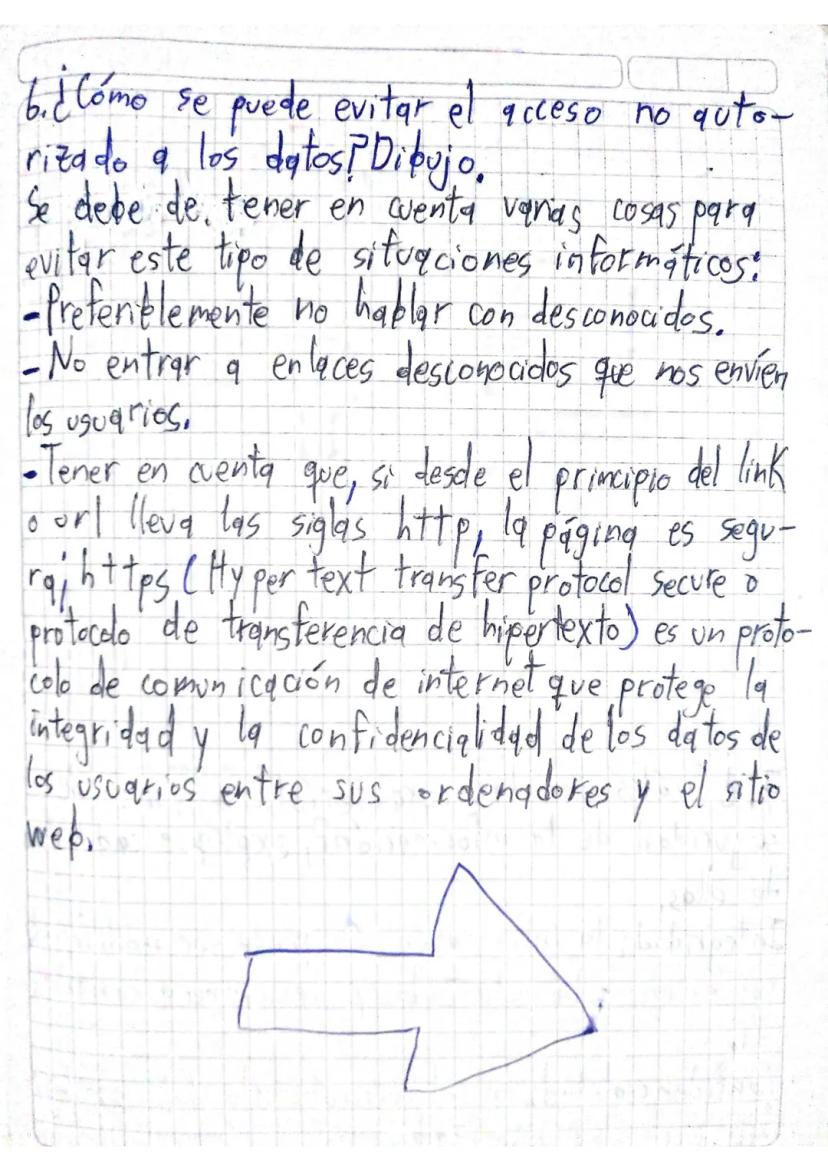 6.¿Cómo se puede evitar el acceso no auto-
rizado a los datos? Dibujo.
Se debe de tener en cuenta varias cosas para
evitar este tipo de situaciones informáticos:
-Preferiblemente no hablar con desconocidos.
-No entrar a enlaces desconocidos que nos envíen
los usuarios.
-Tener en cuenta que, si desde el principio del link
o url lleva las siglas http, la página es segu-
ra; https (Hyper text transfer protocol secure o
protocolo de transferencia de hipertexto) es un proto-
colo de comunicación de internet que protege la
integridad y la confidencialidad de los datos de
los usuarios entre sus ordenadores y el sitio
web.